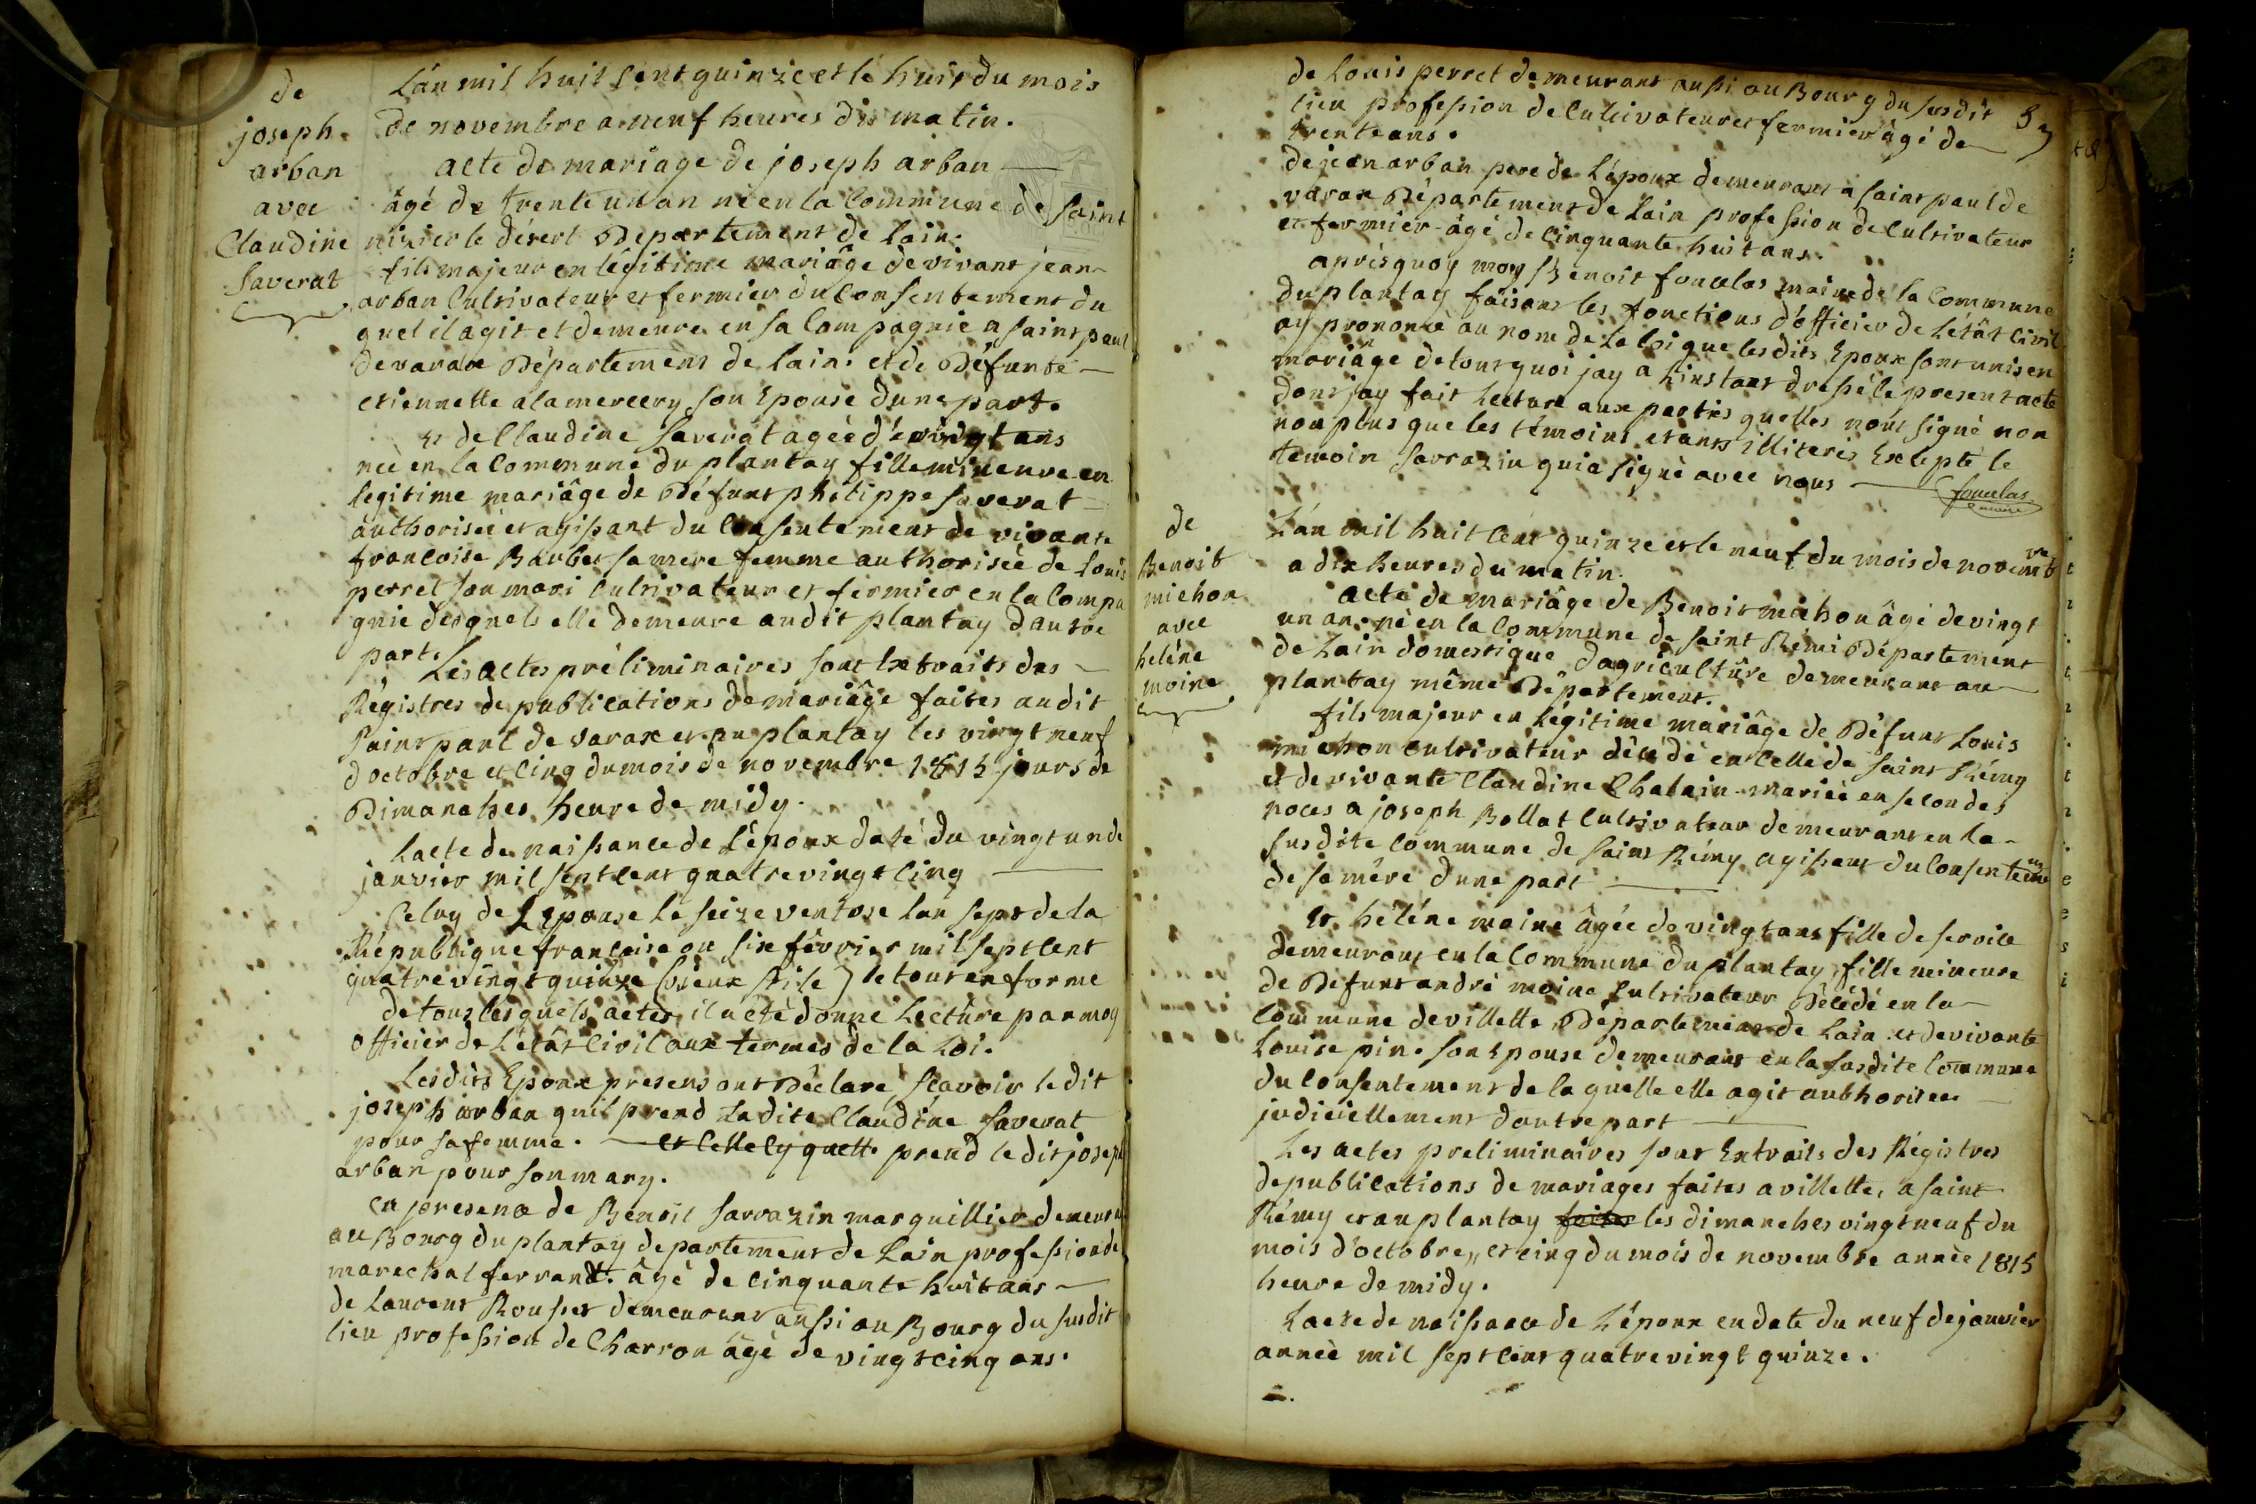 de
joseph
arban
avec
Claudine
Saverat
L'an mil huit sent quinzie et le huit du mois
de novembre a neuf heures du matin.
acte de mariage de joseph arban
âgé de trente un an né en la Commune de saint
nizier le desert Département de Lain.
fils majeur en légitime mariâge de vivant jean
arban Cultivateur et fermier du Consentement du
quel il agit et demeure en sa Compagnie a saint paul
de varax Département de Lain. et de Défunte
etiennette alamercery son Epouse d'une part.
Et de Claudine Saverat ageé de vingt ans
neé en la Commune du plantay fille mineure en
legitime mariâge de Défunt philippe Saverat
authoriseé et agissant du Consentement de vivante
francoise Barbet sa mere femme authoriseé de Louis
perret son mari Cultivateur et fermier en la Compa
gnie desquels elle demeure audit plantay d'autre
part.
Les actes préliminaires sont Extraits des
Régistres de publications de mariâge faites audit
saint paul de varax et au plantay les vingt neuf
d'octobre et cinq du mois de novembre 1815 jours de
Dimanches heure de midy.
L'acte de naissance de L'époux daté du vingt un de
janvier mil sept cent quatre vingt cinq
Celuy de L'Epouse Le seize ventose L'an sept de la
République francoise ou six février mil sept cent
quatre vingt quinze (vieux stile) le tout en forme
de tous lesquels actes, il a été donné Lecture par moy
officier de L'étât Civil aux termes de la Loi.
Lesdits Epoux presens ont Déclaré, Scavoir le dit
joseph arban qu'il prend Ladite Claudine Saverat
pour sa femme. et Celle cy quelle prend le dit joseph
arban pour son mary.
En presence de Benoit Sarrazin marguillier demeurant
au Bourg du plantay departement de Lain profession de
marechal ferrant. âgé de cinquante huit ans
de Laurent Rousset demeurant aussi au Bourg du susdit
lieu profession de Charron âgé de vingt cinq ans.
de Louis perret demeurant aussi au Bourg du susdit
lieu profession de Cultivateur et fermier âgé de
trente ans.
de jean arban pere de L'époux demeurant a saint paul de
varax Département de Lain profession de Cultivateur
et fermier âgé de cinquante huit ans.
après quoy moy Benoit fouilas maire de la Commune
du plantay faisant les fonctions d'officier de L'étât Civil
ay prononcé au nom de La Loi que lesdits Epoux sont unis en
mariâge de tout quoi jay a L'instant dressé le present acte
dont jay fait Lecture aux parties quelles n'ont signé non
non plus que les témoins etants illiteris Excepté le
temoin Sarrazin qui a signé avec nous
fouilas
maire
de
Benoit
michon
avec
heléne
moine
L'an mil huit cent quinze et le neuf du mois de novembre
a dix heures du matin.
acte de mariâge de Benoit michon âgé de vingt
un an. né en la Commune de saint Rémi Département
de Lain domestique d'agriculture demeurant au
plantay même Département.
fils majeur en Légitime mariâge de Défunt Louis
michon cultivateur décédé en Celle de saint Rémy
et de vivante Claudine Chatain marieé en secondes
noces a joseph Bollat Cultivateur demeurant en la
susdite Commune de saint Rémy agissant du Consentement
de sa mére d'une part
Et. héléne moine âgée de vingt ans fille de service
demeurant en la Commune du plantay fille mineure
de Défunt andré moine Cultivateur Décédé en la
Commune de villette Département de Lain et de vivante
Louise pin. son Epouse demeurant en la susdite Commune
du Consentement de la quelle elle agit authoriseé
judiciellement d'autre part
Les actes preliminaires sont Extraits des Régistres
de publications de mariages faites a villette, a saint
Rémy et au plantay faites les dimanches vingt neuf du
mois d'octobre,, et cinq du mois de novembre année 1815
heure de midy.
L'acte de naissance de L'époux en date du neuf de janvier
année mil sept cent quatre vingt quinze.